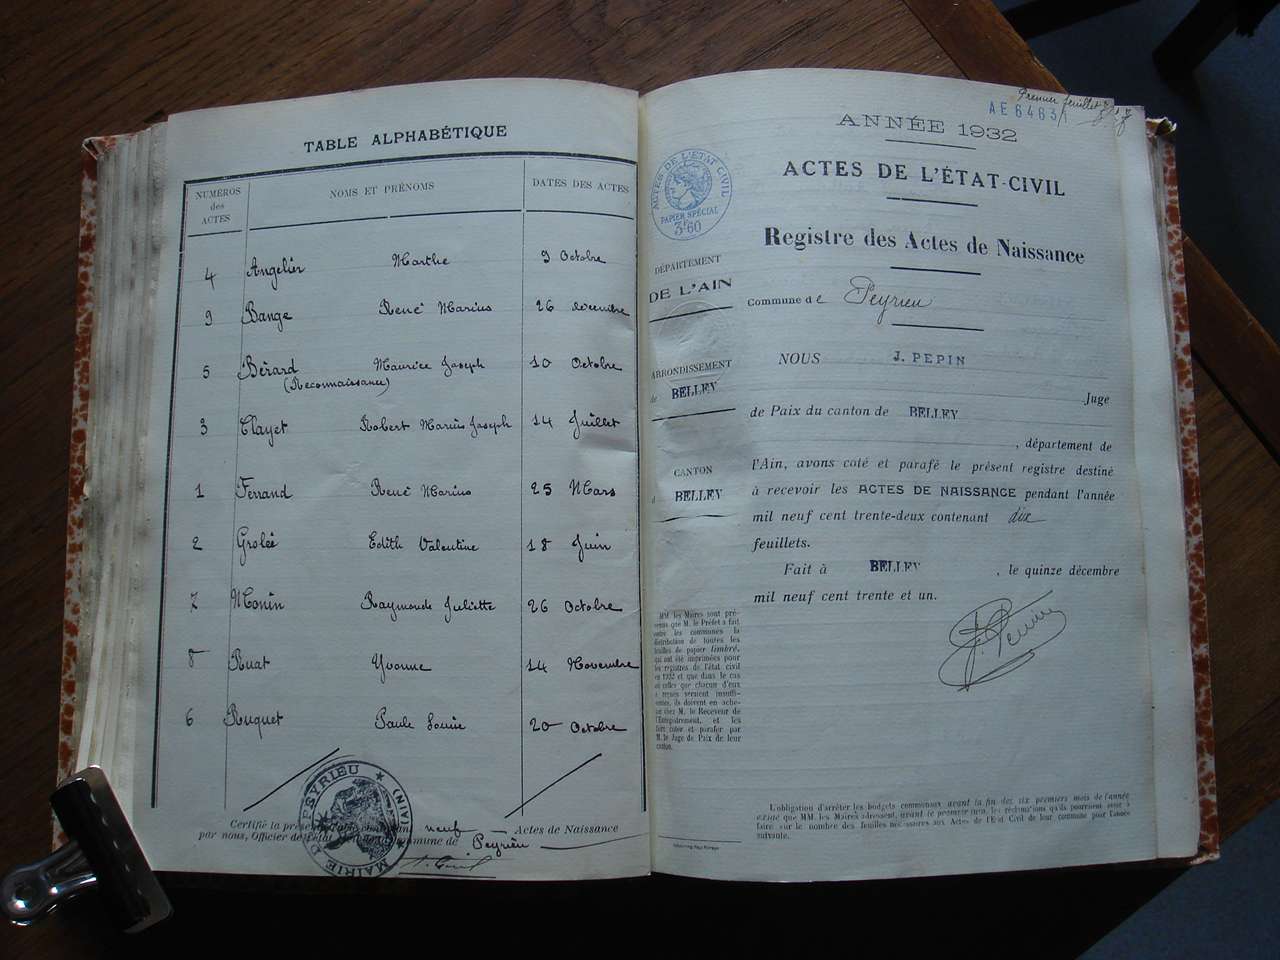 TABLE ALPHABÉTIQUE
NUMÉROS des ACTES NOMS ET PRÉNOMS DATES DES ACTES
4 Angelier Marthe 9 Octobre
9 Bange René Marius 26 décembre
5 Bérard Maurice Joseph 10 Octobre
(Reconnaissance)
3 Clayet Robert Marius Joseph 14 Juillet
1 Ferrand René Marius 25 Mars
2 Grolée Edith Valentine 18 Juin
7 Monin Raymonde Juliette 26 Octobre
8 Ruat Yvonne 14 Novembre
6 Ruquet Paule Louise 20 Octobre
MAIRIE DE PEYRIEU (AIN)
Certifié la présente Table neuf Actes de Naissance
par nous, Officier de l'État commune de Peyrieu
Premier feuillet
AE64631
ANNÉE 1932
ACTES DE L'ÉTAT-CIVIL
Registre des Actes de Naissance
ACTES DE L'ÉTAT CIVIL
PAPIER SPÉCIAL
3F60
DÉPARTEMENT
DE L'AIN
ARRONDISSEMENT
de BELLEY
CANTON
d BELLEY
Commune de Peyrieu
NOUS J. PEPIN
Juge
de Paix du canton de BELLEY
, département de
l'Ain, avons coté et parafé le présent registre destiné
à recevoir les ACTES DE NAISSANCE pendant l'année
mil neuf cent trente-deux contenant dix
feuillets.
Fait à BELLEY , le quinze décembre
mil neuf cent trente et un.
MM. les Maires sont pré-
venus que M. le Préfet a fait
entre les communes la
distribution de toutes les
feuilles de papier timbré,
qui ont été imprimées pour
les registres de l'état civil
en 1932 et que dans le cas
où celles que chacun d'eux
a reçues seraient insuffi-
santes, ils doivent en ache-
ter chez M. le Receveur de
l'Enregistrement, et les
faire coter et parafer par
M. le Juge de Paix de leur
canton.
L'obligation d'arrêter les budgets communaux avant la fin des six premiers mois de l'année
exige que MM. les Maires adressent, avant le premier juin, les réclamations qu'ils pourraient avoir à
faire sur le nombre des feuilles nécessaires aux Actes de l'État Civil de leur commune pour l'année
suivante.